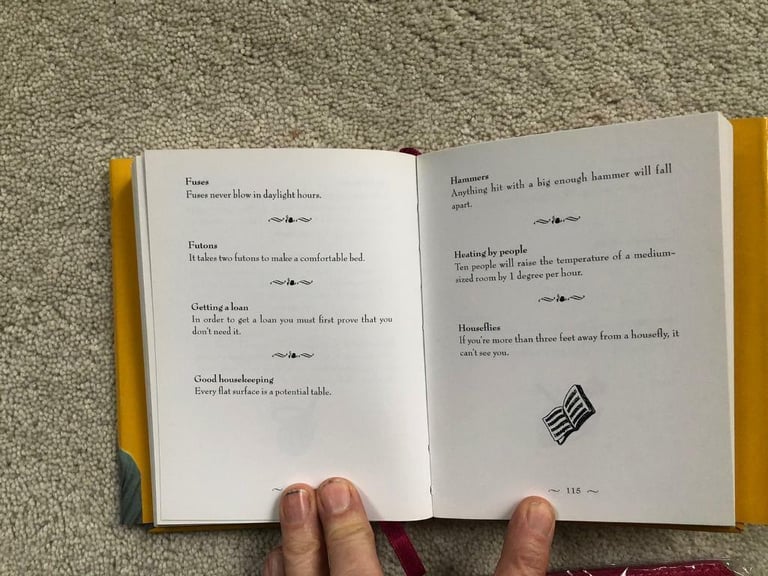 Fuses
Fuses never blow in daylight hours.
Futons
It takes two futons to make a comfortable bed.
Getting a loan
In order to get a loan you must first prove that you
don't need it.
Good housekeeping
Every flat surface is a potential table.
Hammers
Anything hit with a big enough hammer will fall
apart.
Heating by people
Ten people will raise the temperature of a medium-
sized room by 1 degree per hour.
Houseflies
If you're more than three feet away from a housefly, it
can't see you.
~ 115 ~